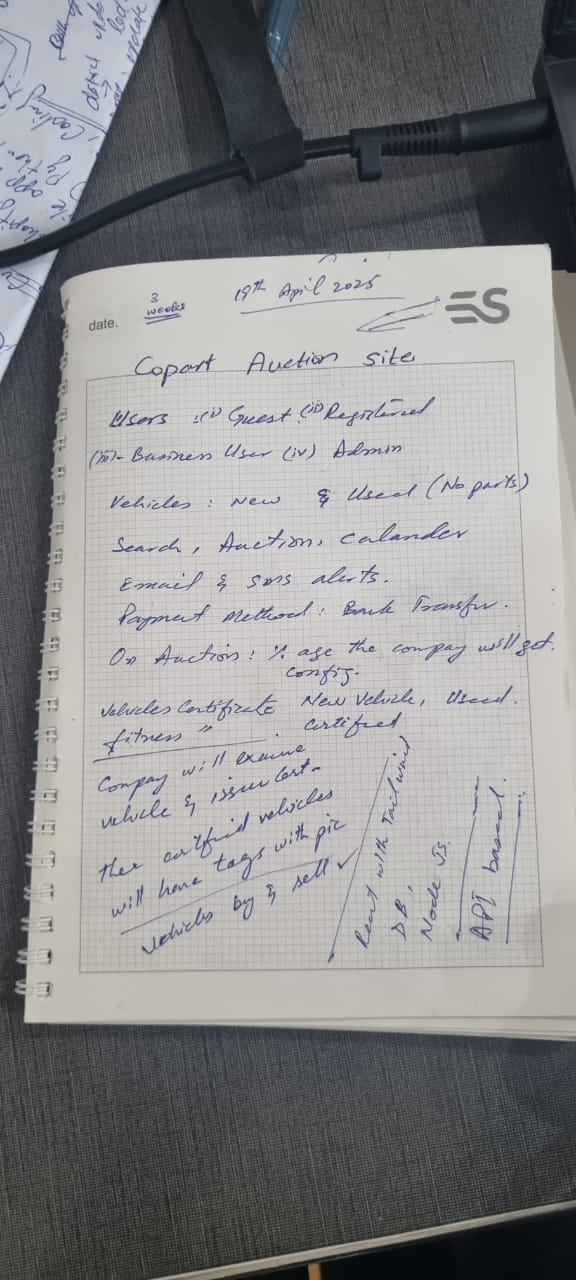 date.
3
weeks
19th April 2025
ES
Copart Auction Site
Users :(i) Guest (ii) Registered
(iii)- Business User (iv) Admin
Vehicles : New & Used (No parts)
Search, Auction, Calander
Email & SMS alerts.
Payment Method : Bank Transfer.
On Auction : % age the compay will get.
config.
Vehicles Certificate New Vehicle, Used.
fitness " certified
Compay will examine
vehicle & issue cert-
ther certified vehicles
will have tags with pic
Vehicles by & sell
React with Tailwind
DB,
Node Js.
API based.
Coding
Python